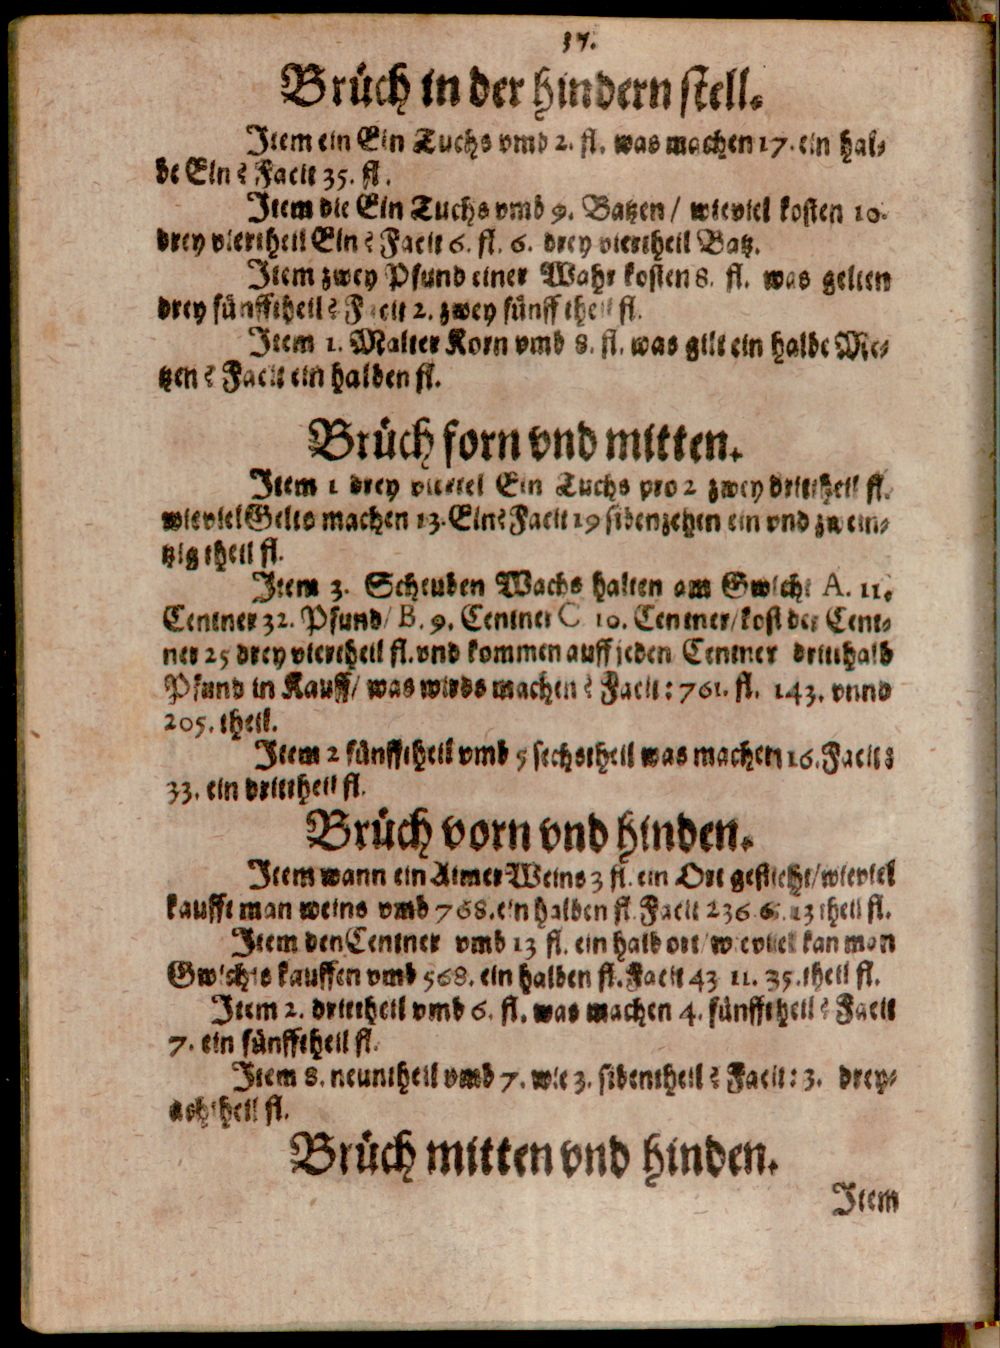 37.
Brüch in der hindern stell.
Item ein Eln Tuchs vmb 2. fl. was machen 17. ein hal-
be Eln? Facit 35. fl.
Item die Eln Tuchs vmb 9. Batzen / wieviel kosten 10.
drey viertheil Eln? Facit 6. fl. 6. drey viertheil Batz.
Item zwey Pfund einer Wahr kosten 8. fl. was gelten
drey fünfftheil? Facit 2. zwey fünfftheil fl.
Item 1. Malter Korn vmb 8. fl. was gilt ein halbe Me-
tzen? Facit ein halben fl.
Brüch forn vnd mitten.
Item 1 drey viertel Eln Tuchs pro 2 zwey drittheil fl.
wieviel Gelts machen 13. Eln? Facit 19 sibenzehen ein vnd zwein-
tzig theil fl.
Item 3. Scheuben Wachs halten am Gwicht A. 11.
Centner 32. Pfund / B. 9. Centner C 10. Centner / kost der Cent-
ner 25 drey viertheil fl. vnd kommen auff jeden Centner dritthalb
Pfund in Kauff / was wirds machen? Facit: 761. fl. 143. vnnd
205. theil.
Item 2 fünfftheil vmb 5 sechstheil was machen 16. Facit:
33. ein drittheil fl.
Brüch vorn vnd hinden.
Item wann ein Aimer Weins 3 fl. ein Ort gesteht / wieviel
kaufft man weins vmb 768. ein halben fl. Facit 236 6. 13 theil fl.
Item den Centner vmb 13 fl. ein halb ort / wieviel kan man
Gwichts kauffen vmb 568. ein halben fl. Facit 43 11. 35. theil fl.
Item 2. drittheil vmb 6. fl. was machen 4. fünfftheil? Facit
7. ein fünfftheil fl.
Item 8. neuntheil vmb 7. wie 3. sibentheil? Facit: 3. drey-
achtheil fl.
Brüch mitten vnd hinden.
Item